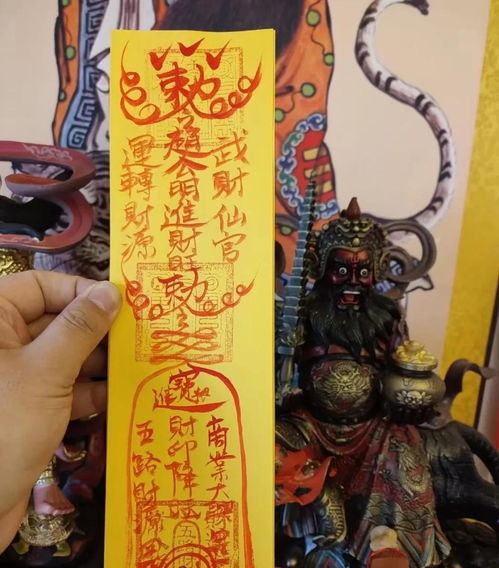 勅
武財仙官
趙公明進財旺
運轉財源
勅
進寶招
商業大
財印降
五路財源